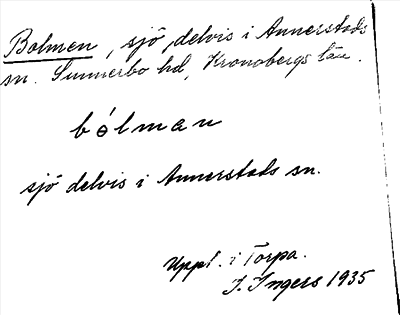 Bolmen, sjö, delvis i Annerstads
sn. Sunnerbo hd, Kronobergs län.
bólman
sjö delvis i Annerstads sn.
Uppl. i Torpa.
I. Ingers 1935